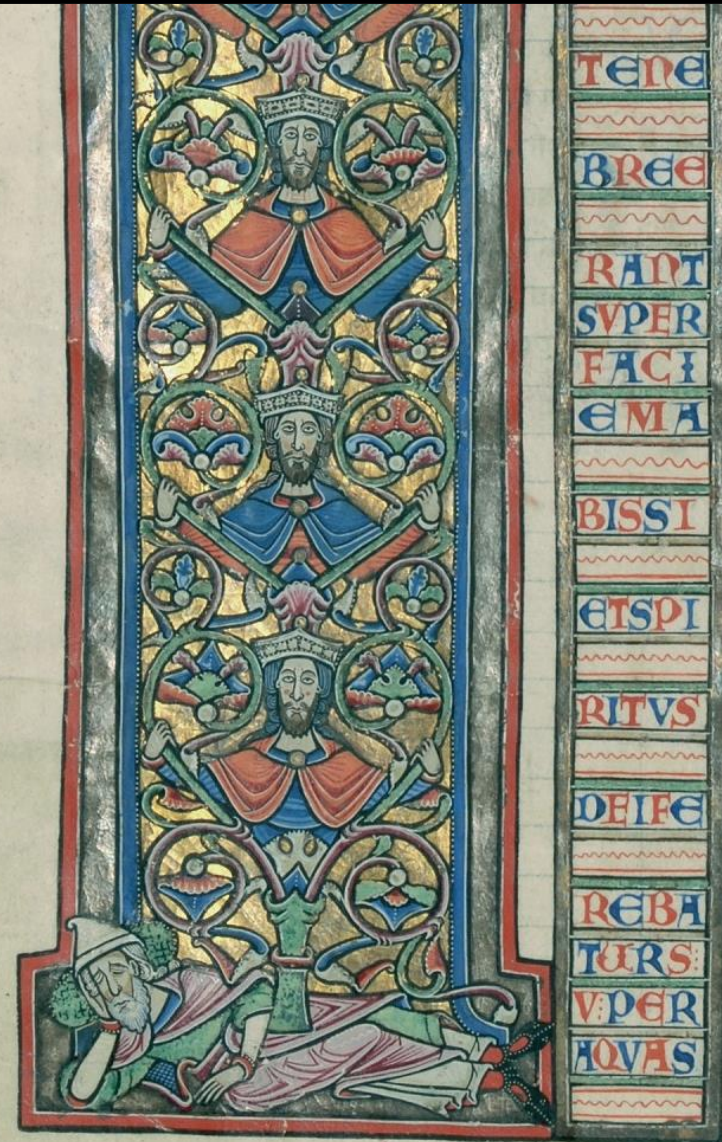 TENE
BREE
RANT
SVPER
FACI
EMA
BISSI
ETSPI
RITVS
DEIFE
REBA
TURS:
V:PER
AQVAS